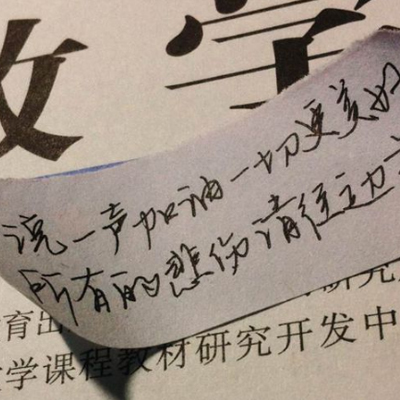 数学
说一声加油一切更美好
所有的悲伤请往边
育出 研究
学课程教材研究开发中